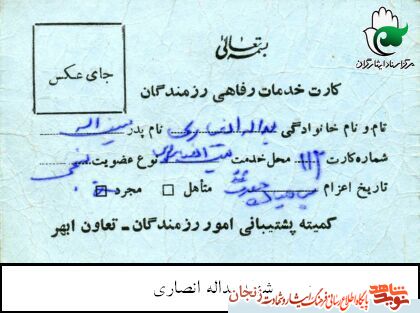 بسمه تعالی
جای عکس
مرکز اسناد ایثارگران
کارت خدمات رفاهی رزمندگان
نام و نام خانوادگی یداله انصاری نام پدر
شماره کارت ۱۱۲ محل خدمت نوع عضویت بسیجی
تاریخ اعزام متأهل مجرد
کمیته پشتیبانی امور رزمندگان - تعاون ابهر
یداله انصاری
نوید شاهد زنجان
پایگاه اطلاع رسانی فرهنگ ایثار و شهادت